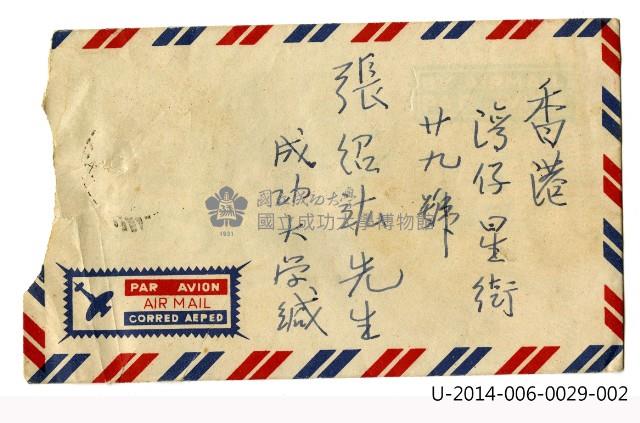 香港
灣仔星街
廿九號
張紹 先生
成功大学緘
國立成功大學
國立成功大學博物館
1931
PAR AVION
AIR MAIL
CORRED AEPED
U-2014-006-0029-002